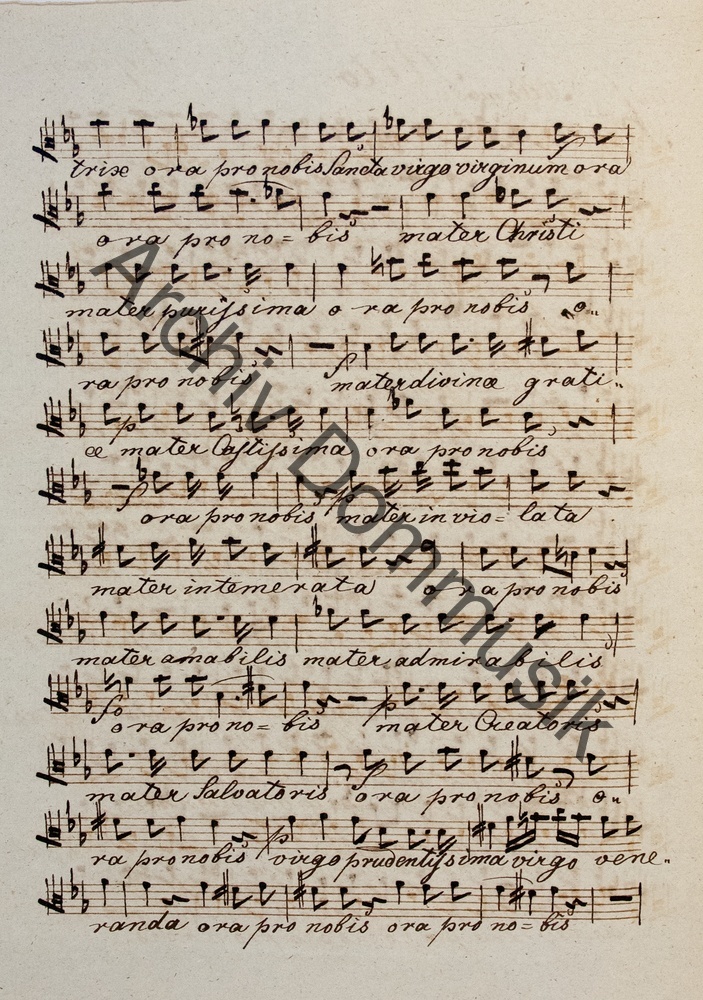 trix ora pro nobis Sancta virgo virginum ora
ora pro no= bis mater Christi
mater purissima o ra pro nobis o=
ra pro nobis mater divinæ grati=
æ mater Castissima ora pro nobis
ora pro nobis mater in vio= lata
mater intemerata o ra pro nobis
mater amabilis mater admirabilis
ora pro no= bis mater Creatoris
mater Salvatoris ora pro nobis o=
ra pro nobis virgo prudentissima virgo vene=
randa ora pro nobis ora pro no= bis
Archiv Dommusik